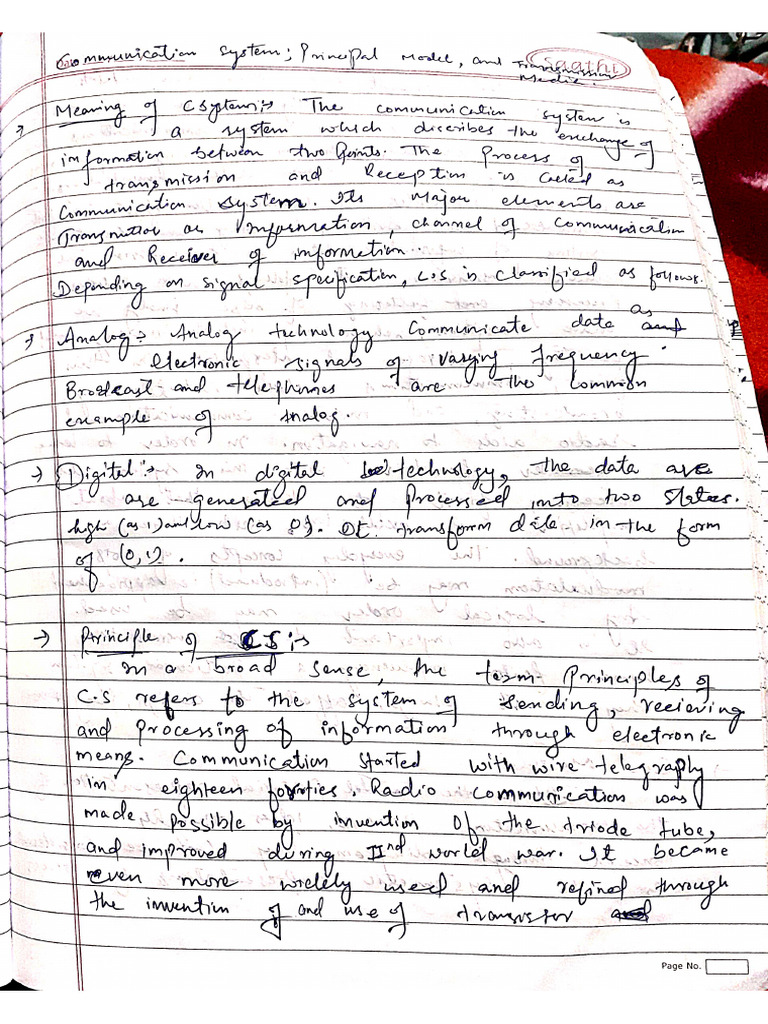 Communication System; Principal Model, and Transmission
Saathi
Media.
→ Meaning of C System:- The communication system is
a system which discribes the exchange of
information between two Points. The Process of
transmission and Reception is Called as
Communication System. Its Major elements are
Transmittor as Information, channel of Communication
and Receiver of information..
Depending on signal specification, C.S is Classified as follows.
→ Analog:- Analog technology Communicate data as
electronic signals of varying frequency.
Broadcast and telephones are the Common
example of Analog.
→ Digital:- In digital technology, the data are
are generated and Processed into two States.
high (as 1) and low (as 0). It transform date in the form
of (0,1).
→ Principle of CS:-
In a broad sense, the term Principles of
C.S refers to the system of sending, recieving
and processing of information through electronic
means. Communication started with wire telegraphy
in eighteen forties. Radio communication was
made possible by invention Of the triode tube,
and improved during IInd world war. It became
even more widely used and refined through
the invention of and use of transistor
Page No.